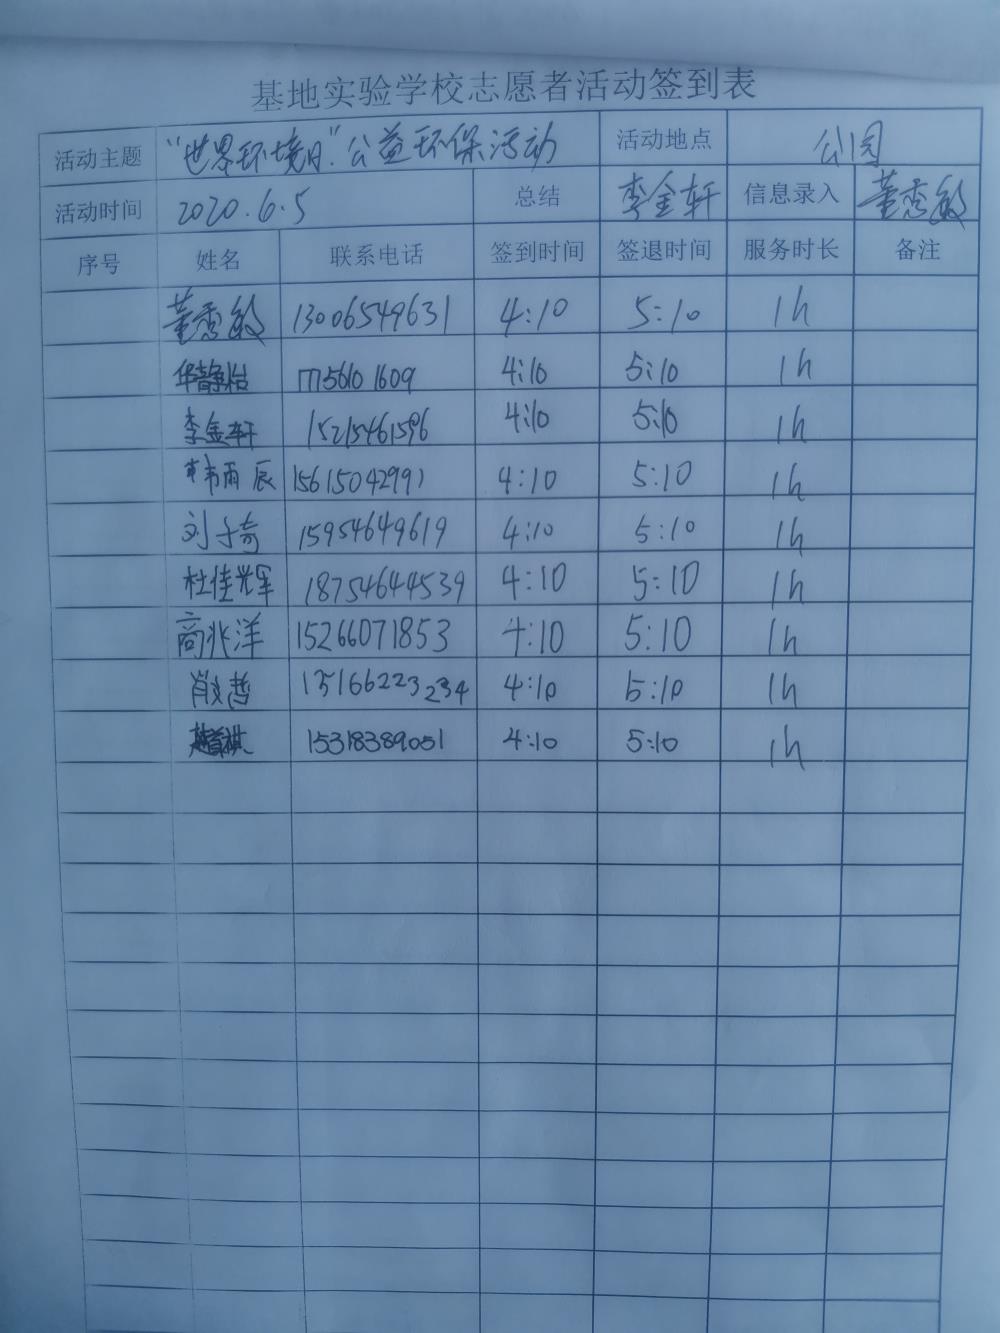 基地实验学校志愿者活动签到表
活动主题 “世界环境日”公益环保活动 活动地点 公园
活动时间 2020.6.5 总结 李金轩 信息录入 董秀敏
序号 姓名 联系电话 签到时间 签退时间 服务时长 备注
董秀敏 13006549631 4:10 5:10 1h
华静怡 4:10 5:10 1h
李金轩 15215461596 4:10 5:10 1h
韩雨辰 15615042991 4:10 5:10 1h
刘子奇 15954649619 4:10 5:10 1h
杜佳辉 18754644539 4:10 5:10 1h
商兆洋 15266071853 4:10 5:10 1h
肖文哲 15166223234 4:10 5:10 1h
15318389051 4:10 5:10 1h